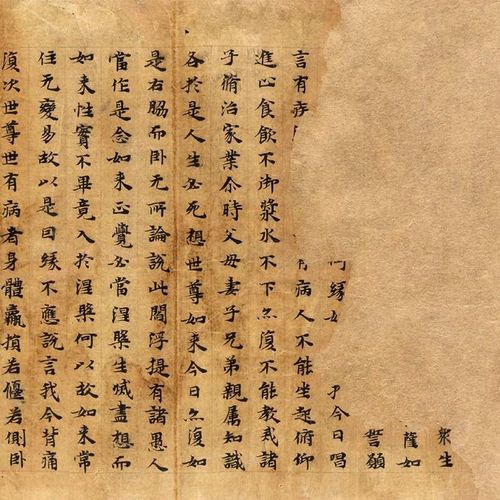 衆生
薩如
誓願
緣 今日唱
言有疾 病人不能坐起俯仰
進止食飲不御漿水不下亦復不能教戒諸
子脩治家業尒時父母妻子兄弟親属知識
各於是人生必死想世尊如来今日亦復如
是右脇而卧无所論說此閻浮提有諸愚人
當作是念如来正覺必當涅槃生滅盡想而
如来性實不畢竟入於涅槃何以故如来常
住无變易故以是因緣不應說言我今背痛
復次世尊世有病者身體羸損若偃若側卧